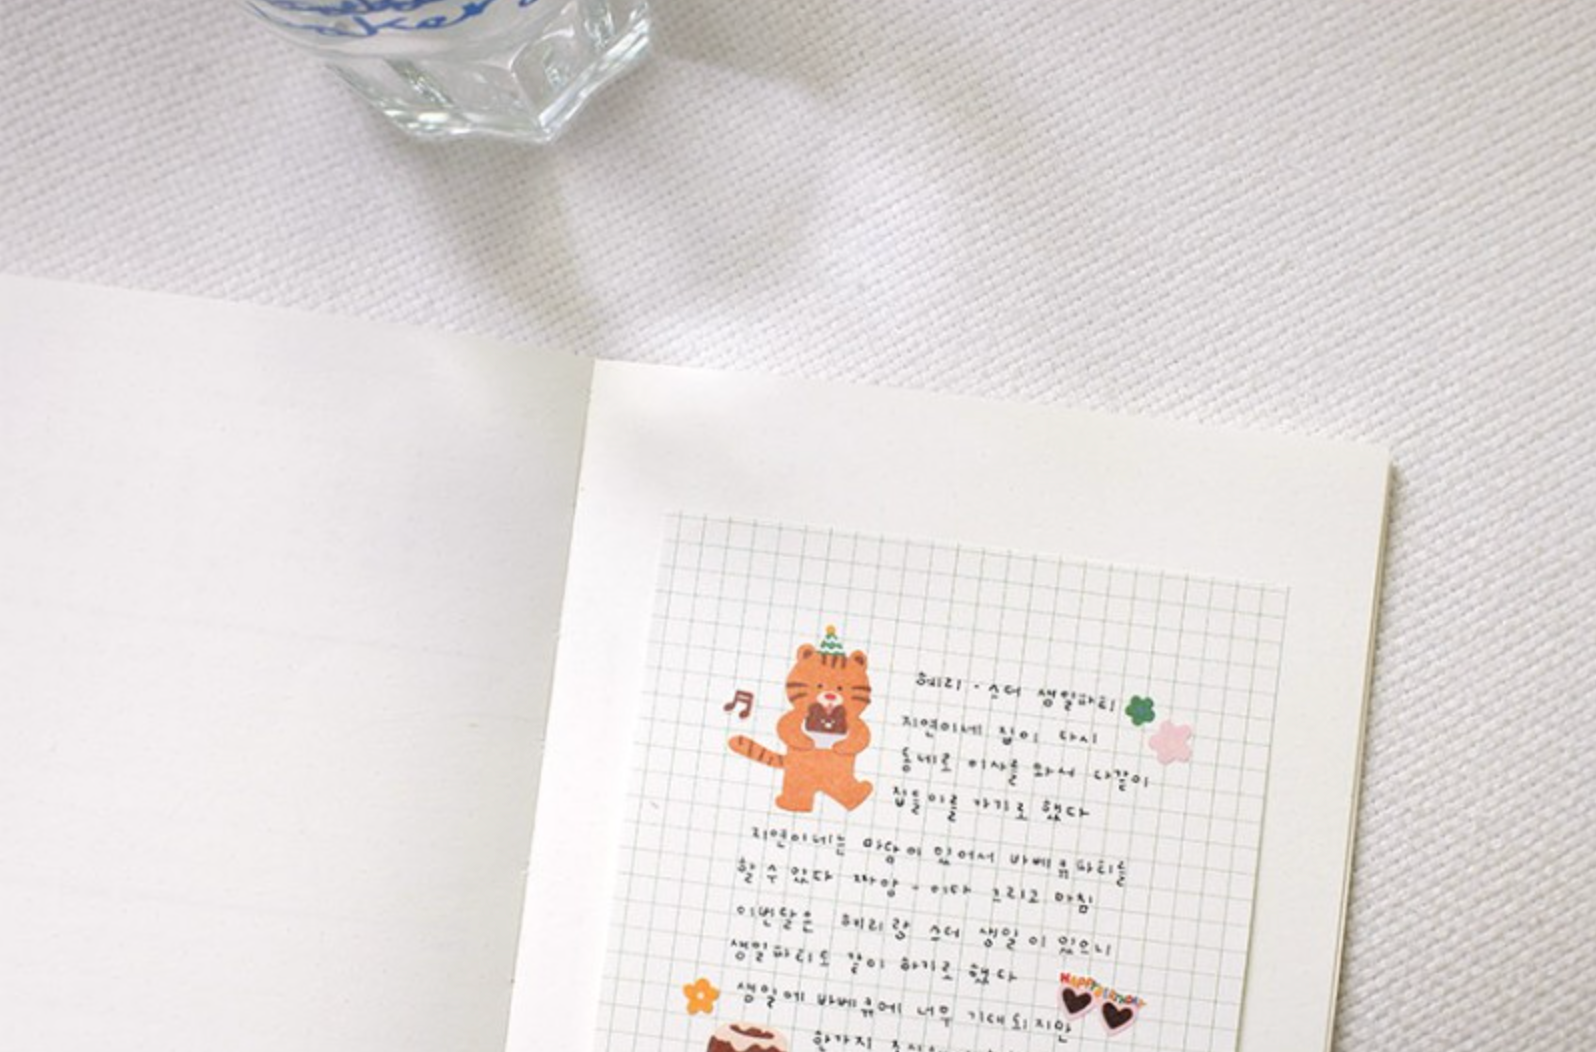 헤리·스더 생일파티
지연이네 집이 다시
동네로 이사를 와서 다같이
집들이를 가기로 했다
지연이네는 마당이 있어서 바베큐파티를
할 수 있다 짜앙 - 이다 그리고 마침
이번달은 헤리랑 스더 생일이 있으니
생일파티도 같이 하기로 했다
Happy Birthday
생일에 바베큐에 너무 기대되지만
한가지